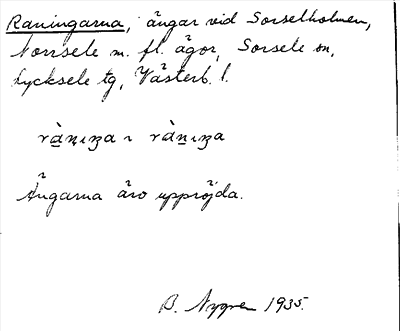 Raningarna, ängar vid Sorselholmen,
Norrsele m. fl. ägor, Sorsele sn,
Lycksele tg, Västerb. l.
Ängarna äro uppröjda.
B. Nygren 1935.